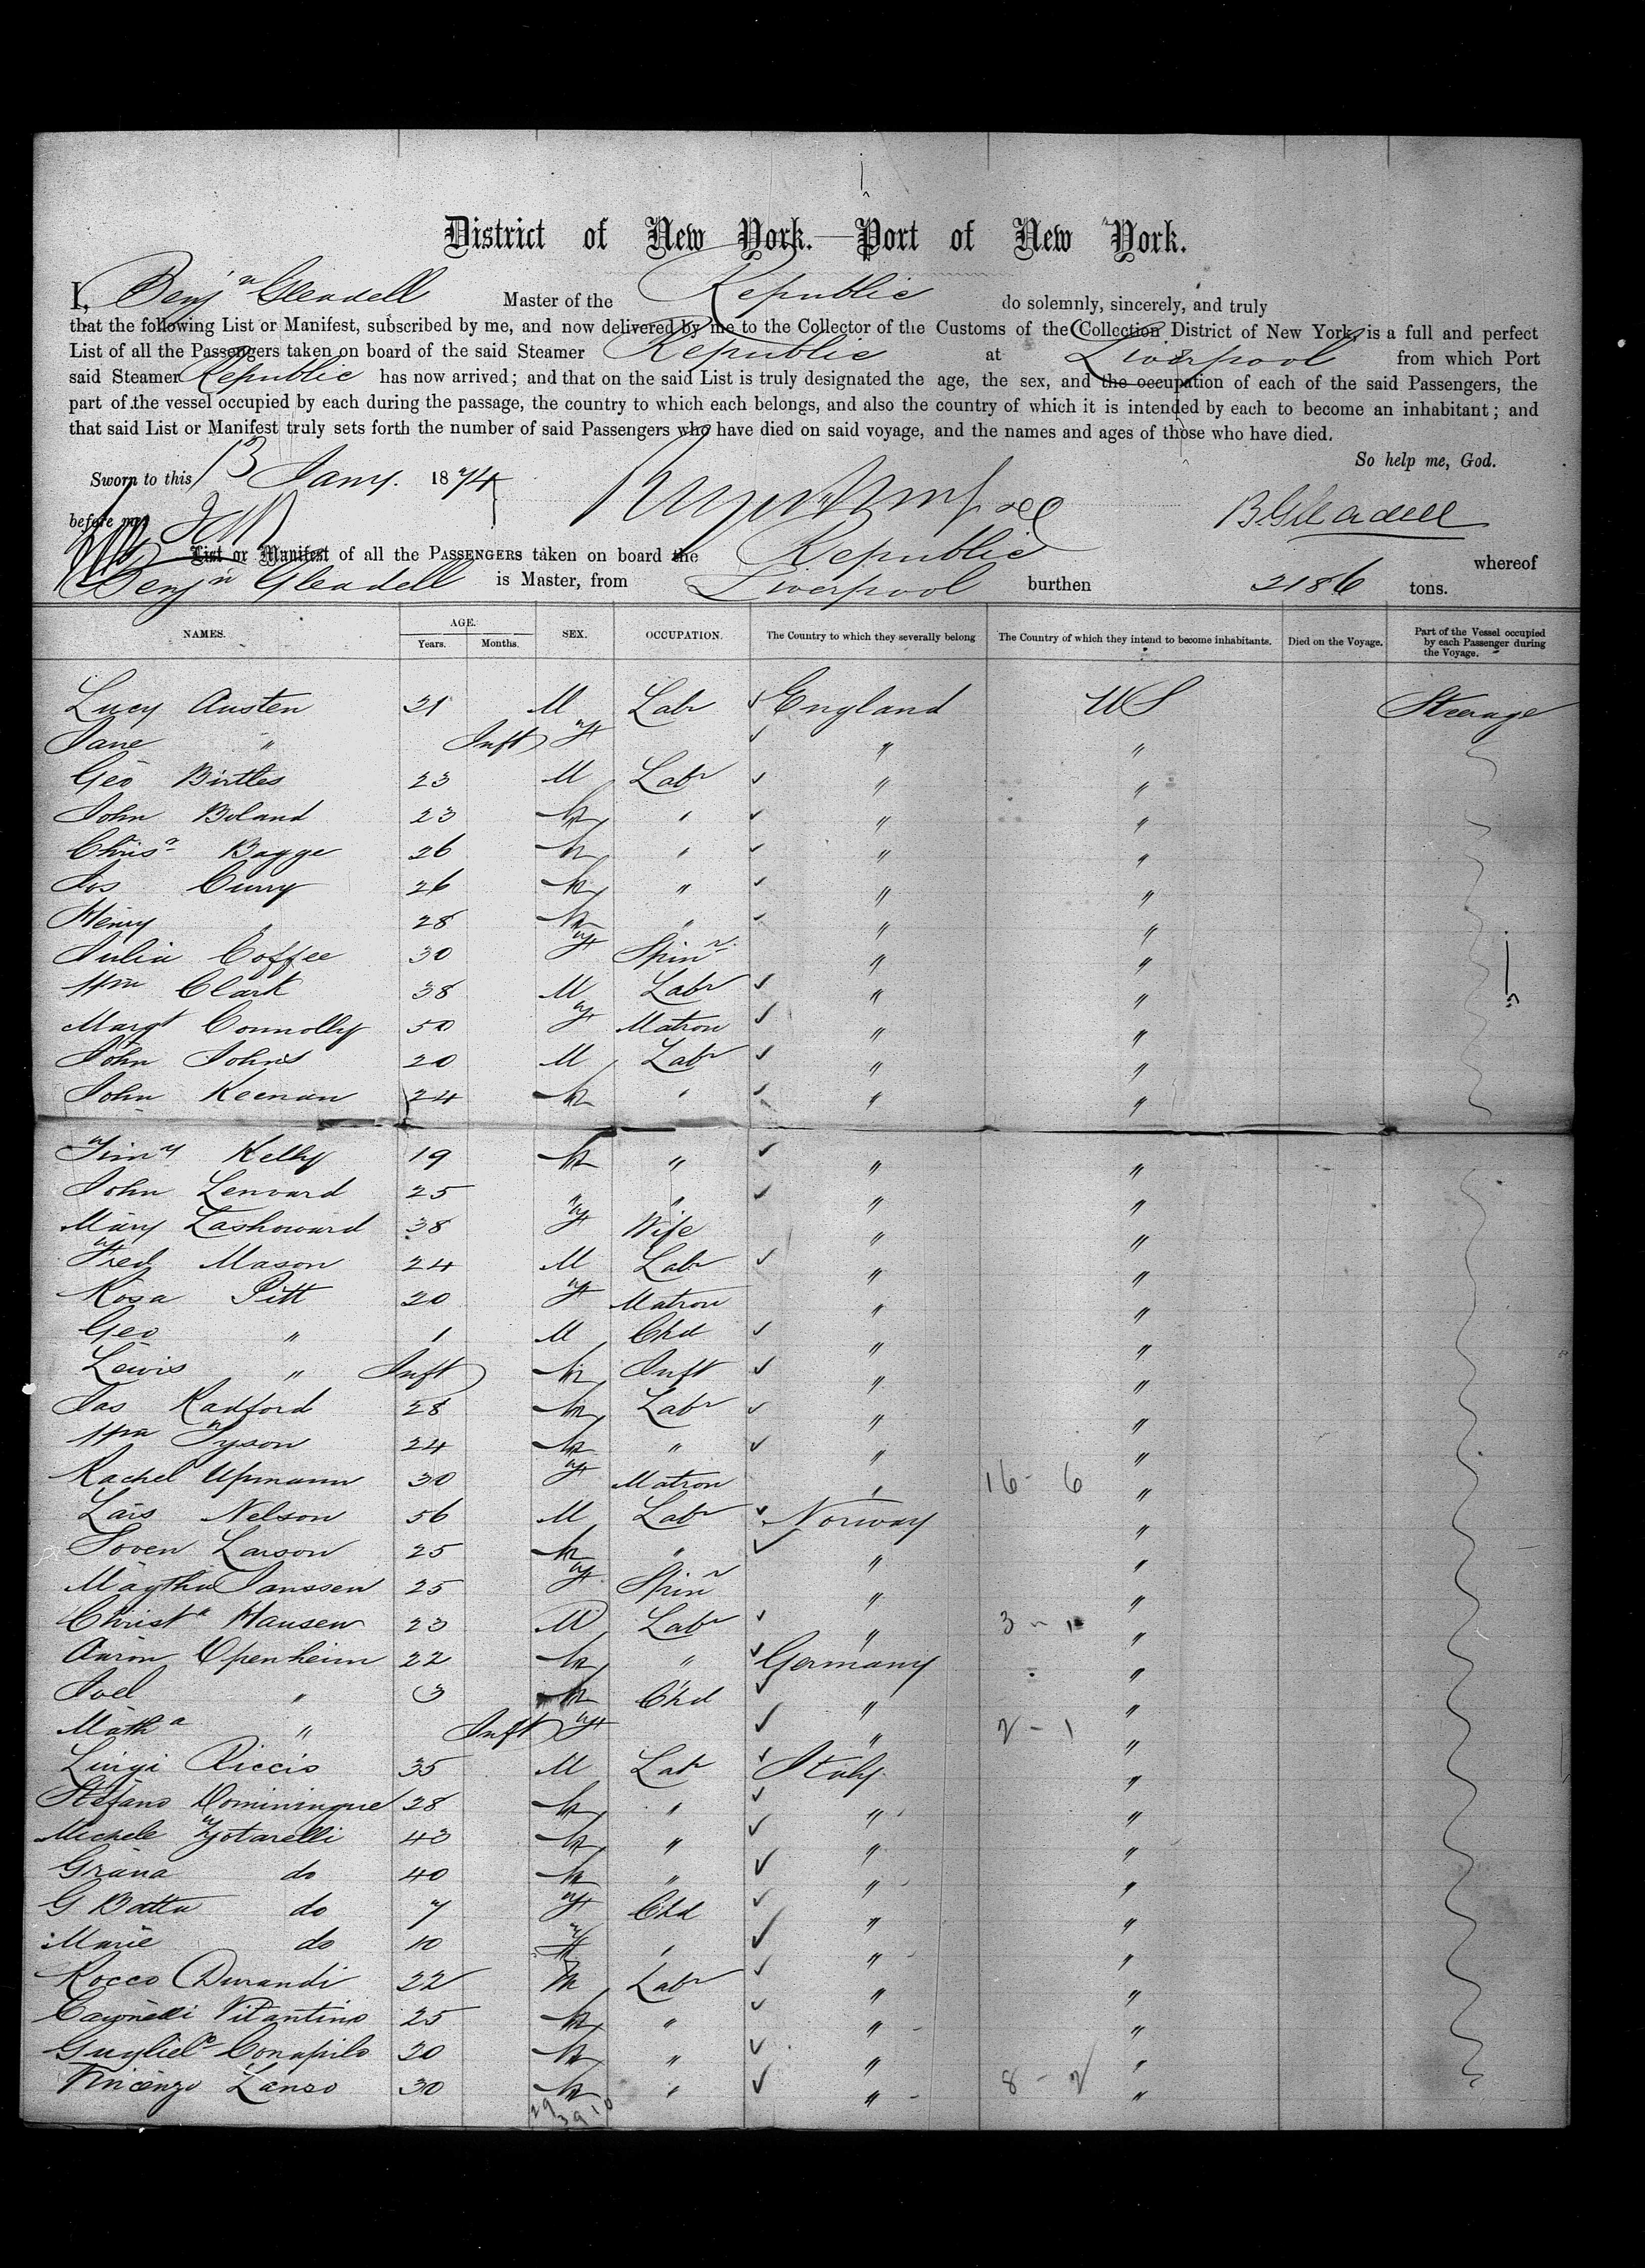 District of New York.—Port of New York.
I, Benjn Gleadell Master of the Republic do solemnly, sincerely, and truly
that the following List or Manifest, subscribed by me, and now delivered by me to the Collector of the Customs of the Collection District of New York, is a full and perfect
List of all the Passengers taken on board of the said Steamer Republic at Liverpool from which Port
said Steamer Republic has now arrived; and that on the said List is truly designated the age, the sex, and the occupation of each of the said Passengers, the
part of the vessel occupied by each during the passage, the country to which each belongs, and also the country of which it is intended by each to become an inhabitant; and
that said List or Manifest truly sets forth the number of said Passengers who have died on said voyage, and the names and ages of those who have died.
So help me, God.
Sworn to this 13 Jany. 1874
before me B Gleadell
List or Manifest of all the PASSENGERS taken on board the Republic whereof
Benjn Gleadell is Master, from Liverpool burthen 2186 tons.
NAMES. AGE. Years. Months. SEX. OCCUPATION. The Country to which they severally belong The Country of which they intend to become inhabitants. Died on the Voyage. Part of the Vessel occupied by each Passenger during the Voyage.
Lucy Austen 21 M Labr England US Steerage
Jane " Inft F " "
Geo Birtles 23 M Labr " "
John Boland 23 M " " "
Chrisr Bagge 26 M " " "
Jos Curry 26 M " " "
Henry " 28 M " " "
Julia Coffee 30 F Spinr " "
Wm Clark 38 M Labr " "
Margt Connolly 50 F Matron " "
John Johns 20 M Labr " "
John Keenan 24 M " " "
Timy Kelly 19 M " " "
John Lenvard 25 " " " "
Mary Lashoward 38 F Wife " "
Fred Mason 24 M Labr " "
Rosa Pitt 20 F Matron " "
Geo " 1 M Chd " "
Lewis " Inft M Inft " "
Jas Radford 28 M Labr " "
Wm Tyson 24 M " " "
Rachel Upmann 30 F Matron " 16 - 6 "
Lars Nelson 56 M Labr Norway "
Soven Larson 25 M " " "
Magtha Janssen 25 F Spinr " "
Christn Hansen 23 M Labr " 3 - 1 "
Aaron Openheim 22 M " Germany "
Joel " 3 M Chd " "
Matha " Inft F " 2 - 1 "
Luigi Riccio 35 M Labr Italy "
Stefano Dominingue 28 M " " "
Michele Zotarelli 43 M " " "
Grana do 40 M " " "
G Batta do 7 F Chd " "
Marie do 10 F " " "
Rocco Durandi 22 M Labr " "
Caronelli Vitantino 25 M " " "
Gugliel° Conapilo 20 M " " "
Vincenzo Lanso 30 M " " 8 - 2 "
29 10
39